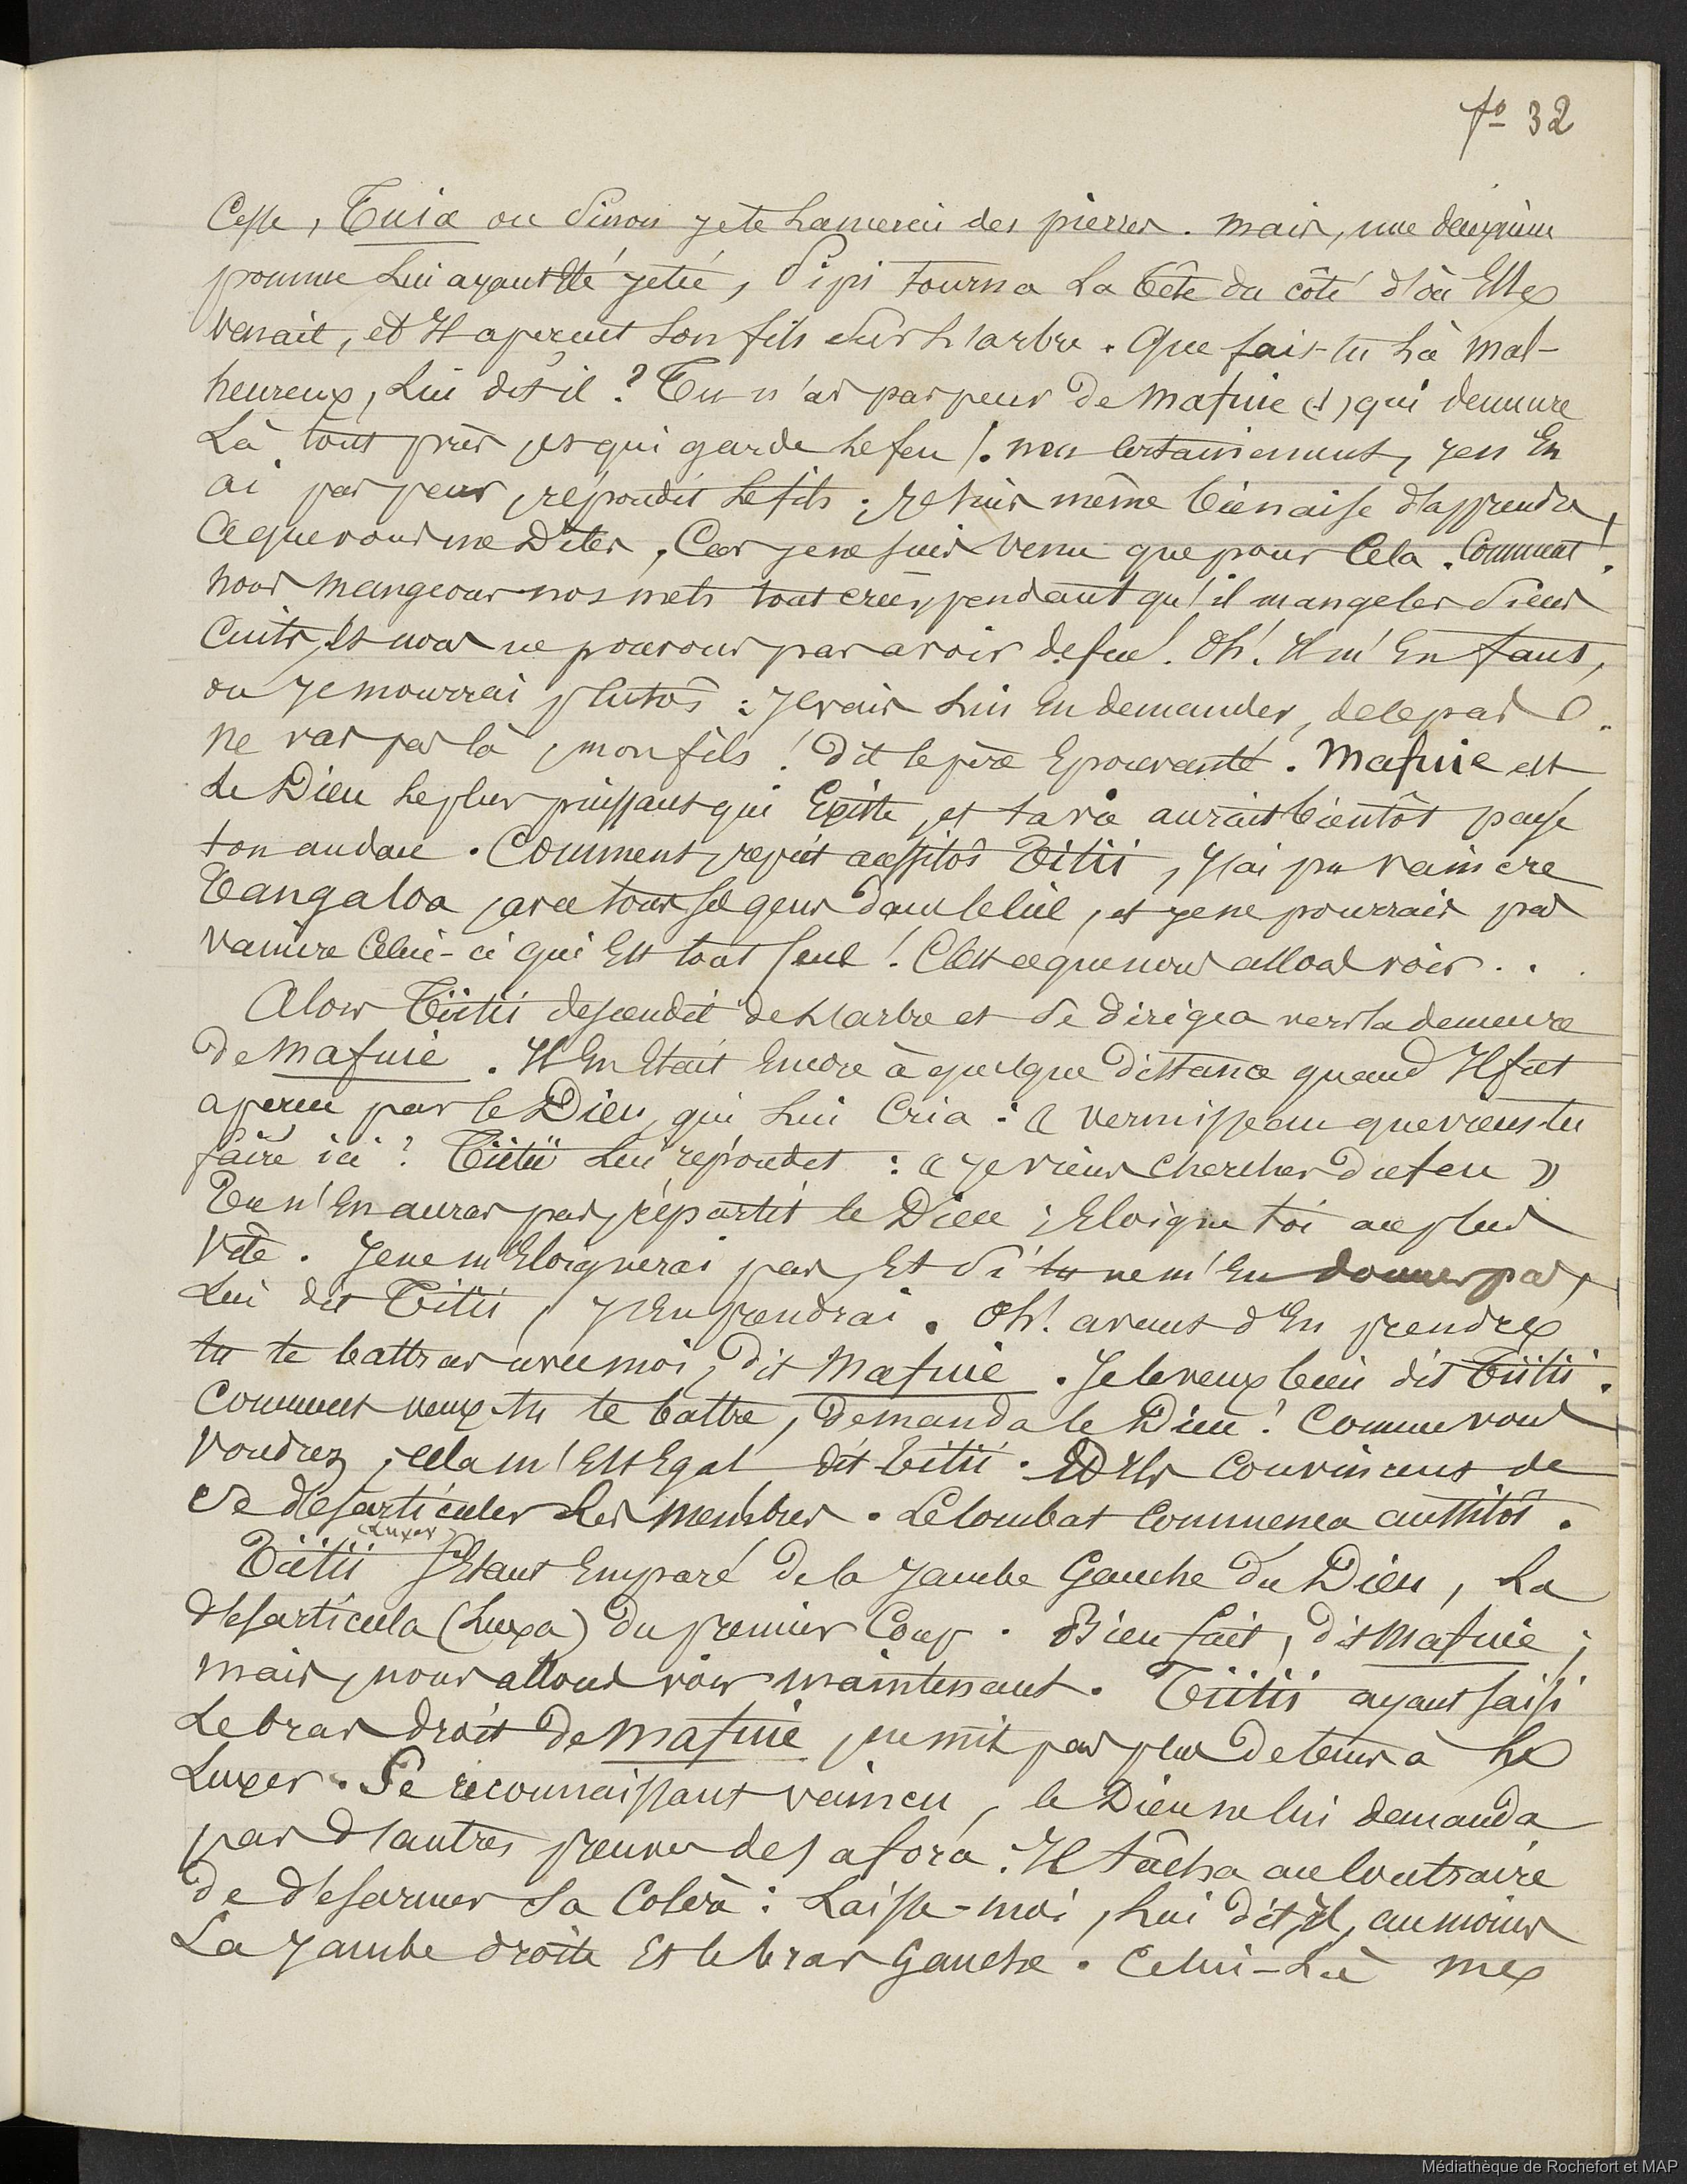 fo 32
Cesse, Tuia ou Sinon je te Lancerai des pierres. Mais, une deuxième
pomme Lui ayant Eté jetée, Sipi tourna La tête du côté d'où Elle
venait, et Il aperçut Son fils Sur L'arbre. Que fais-tu Là mal-
heureux, Lui dit il ? Tu n'as pas peur De Mafuie (1) qui demeure
Là tout près et qui garde Le feu !. non certainement, je n'En
ai pas peur, répondit Le fils ; Je Suis même bien aise d'apprendre
Ce que vous me Dites, Car je ne Suis venu que pour Cela. Comment !
nous mangeons nos mets tout crus, pendant qu'il mange les Siens
Cuits, Et nous ne pouvons pas avoir de feu ! Oh ! Il m'En faut,
ou Je mourrai plutôt : Je vais Lui En demander, de le pas O.
ne vas pas là, mon fils ! Dit le père Epouvanté. Mafuie est
Le Dieu Le plus puissant qui Existe, et ta vie aurait bientôt payé
ton audace. Comment, reprit aussitôt Tiitii, J'ai pu vaincre
Tangaloa, avec tous Ses gens dans le Ciel, et je ne pourrais pas
vaincre Celui-ci qui Est tout Seul ! C'Est ce que nous allons voir . . .
Alors Tiitii descendit de L'arbre et Se Dirigea vers la demeure
De Mafuie. Il En Etait Encore à quelque Distance quand Il fut
aperçu par le Dieu, qui Lui Cria : « Vermisseau que viens-tu
faire ici ? Tiitii Lui répondit : « Je viens Chercher Du feu »
Tu n'En auras pas, répartit le Dieu ; Eloigne toi au plus
Vite. Je ne m'Eloignerai pas, Et Si tu ne m'En donnes pas,
Lui dit Tiitii, J'En prendrai. Oh ! avant d'En prendre
tu te battras avec moi, Dit Mafuie. Je le veux bien dit Tiitii.
Comment veux-tu te battre, Demanda le Dieu ? Comme vous
voudrez, cela m'Est Egal dit Tiitii. Ils Convinrent de
Se désarticuler Les Membres. Le Combat Commença aussitôt.
(Luxer)
Tiitii S'Etant Emparé De la Jambe Gauche Du Dieu, La
Désarticula (Luxa) Du premier Coup. Bien fait, Dit Mafuie ;
mais, nous allons voir maintenant. Tiitii ayant Saisi
Le bras droit De Mafuie, ne mit pas plus De temps à Le
Luxer. Se reconnaissant vaincu, le Dieu ne lui demanda
pas D'autres preuves de Sa force. Il tâcha au Contraire
De désarmer Sa Colère : Laisse-moi, Lui dit, Il, au moins
La Jambe droite Et le bras Gauche. Celui-Là me
Médiathèque de Rochefort et MAP